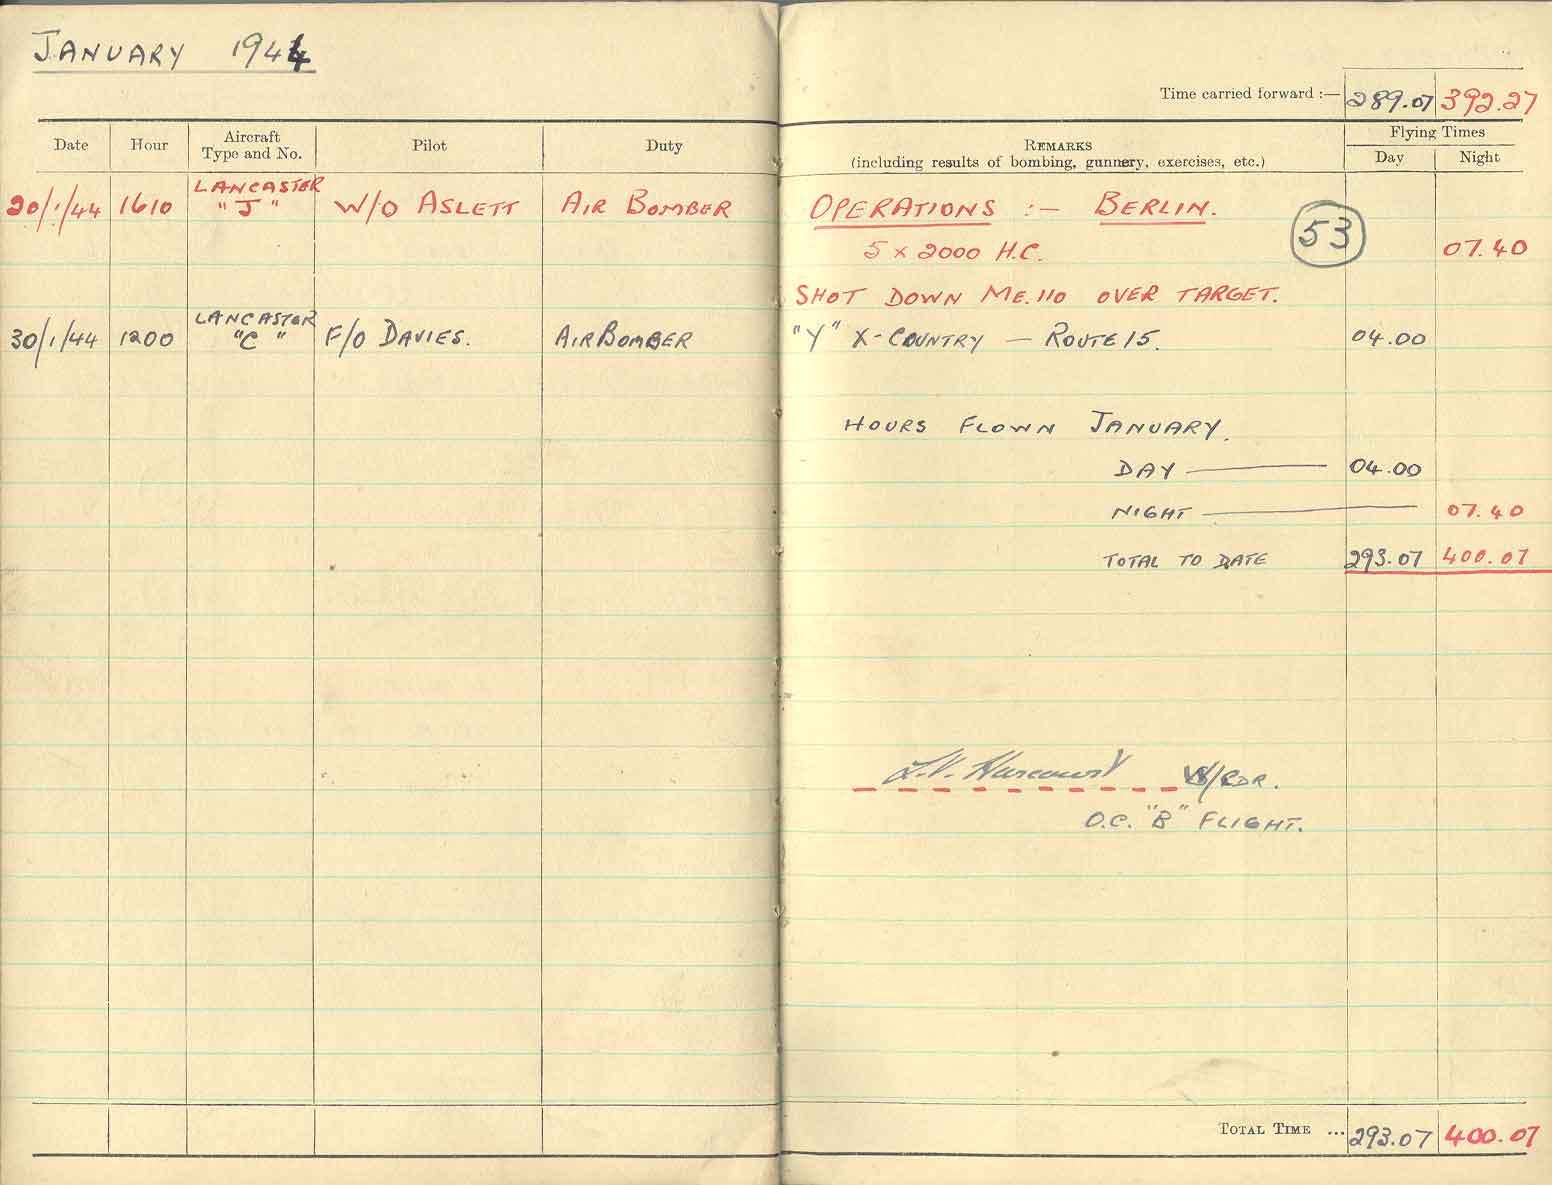 JANUARY 1944
Time carried forward :— 289.07 392.27
Date Hour Aircraft Type and No. Pilot Duty REMARKS (including results of bombing, gunnery, exercises, etc.) Flying Times Day Night
20/1/44 1610 LANCASTER "J" W/O ASLETT AIR BOMBER OPERATIONS :— BERLIN.
53
5 x 2000 H.C. 07.40
SHOT DOWN ME.110 OVER TARGET.
30/1/44 1200 LANCASTER "C" F/O DAVIES. AIR BOMBER "Y" X-COUNTRY — ROUTE 15. 04.00
HOURS FLOWN JANUARY.
DAY — 04.00
NIGHT — 07.40
TOTAL TO DATE 293.07 400.07
L.V. Harcourt W/CDR.
O.C. "B" FLIGHT.
TOTAL TIME ... 293.07 400.07